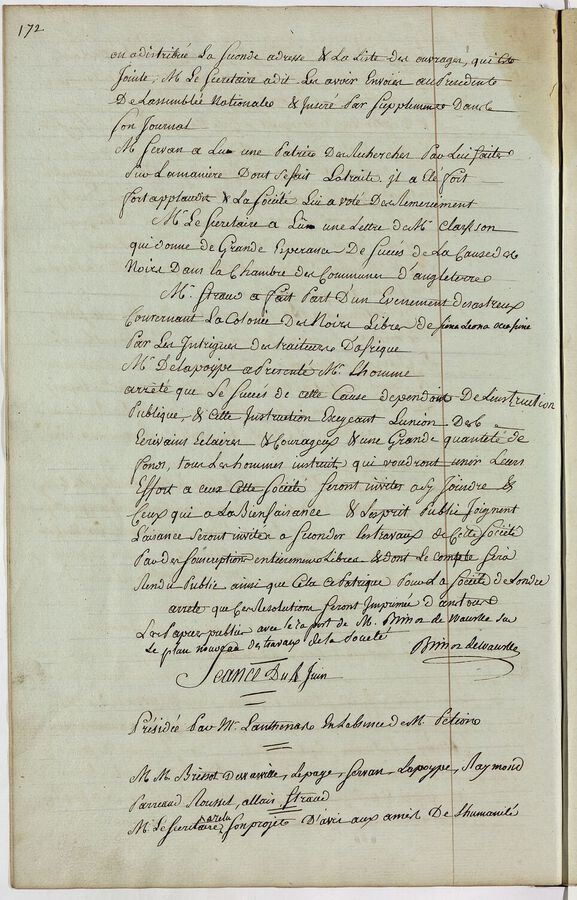 172
on a distribuée La Seconde adresse & La Liste des ouvrages, qui est
Jointe, M. Le Secretaire a dit Les avoir Envoiés au Presidente
De Lassemblée Nationale & Inseré Par Supplement Dans
Son Journal
M Servan a Lu une Partie Des Recherches Par Lui faites
Sur La maniere Dont Se fait La traite, il a Eté fort
fort applaudit & La Société Lui a voté Des Remerciment
Mr Le Secretaire a Lu une Lettre de Mr Clarkson
qui donne de Grande Esperance De Succés de La Cause des
Noirs Dans la Chambre des Communes d'angleterre
Mr. Straud a fait Part D'un Evenement desastreux
Concernant La Colonie Des Noirs Libres de Siera Leona
Par Les Intrigues des traiteurs D'afrique
Mr Delapoype a Presenté Mr. Lhomme
arrêté que Le Succés de cette Cause dependant De Linstruction
Publique, & Cette Instruction Exigeant Lunion Des
Ecrivains Eclairés & Courageux & une Grande quantité de
fonds, tous Les hommes instruits qui voudront unir Leurs
Effort a ceux Cette Société Seront invités a Sy Joindre &
Ceux qui a La Bienfaisance & Lesprit Public Joignent
Laisance Seront invités a Seconder les travaux de Cette Société
Par des Souscriptions entierement Libres & dont Le Compte Sera
Rendu Public ainsi que Cela Se Pratique Pour La Société de Londre
arrete que Ces Resolutions Seront Imprimé dans tous
Les Papiers publics avec le rapport de M. Brissot de Warville Sur
Le plan nouveau des travaux de la Société
Brissot de warville
Seance Du 4 Juin
Présidée Par Mr. Lanthenas En Labsence de M. Petion
M M Brissot Dewarville, Lepage, Servan, Lapoype, Raymond
Parraud Rousset, allais, Straud
M. Le Secretaire a relu Son projet D'avis aux amis De Lhumanité